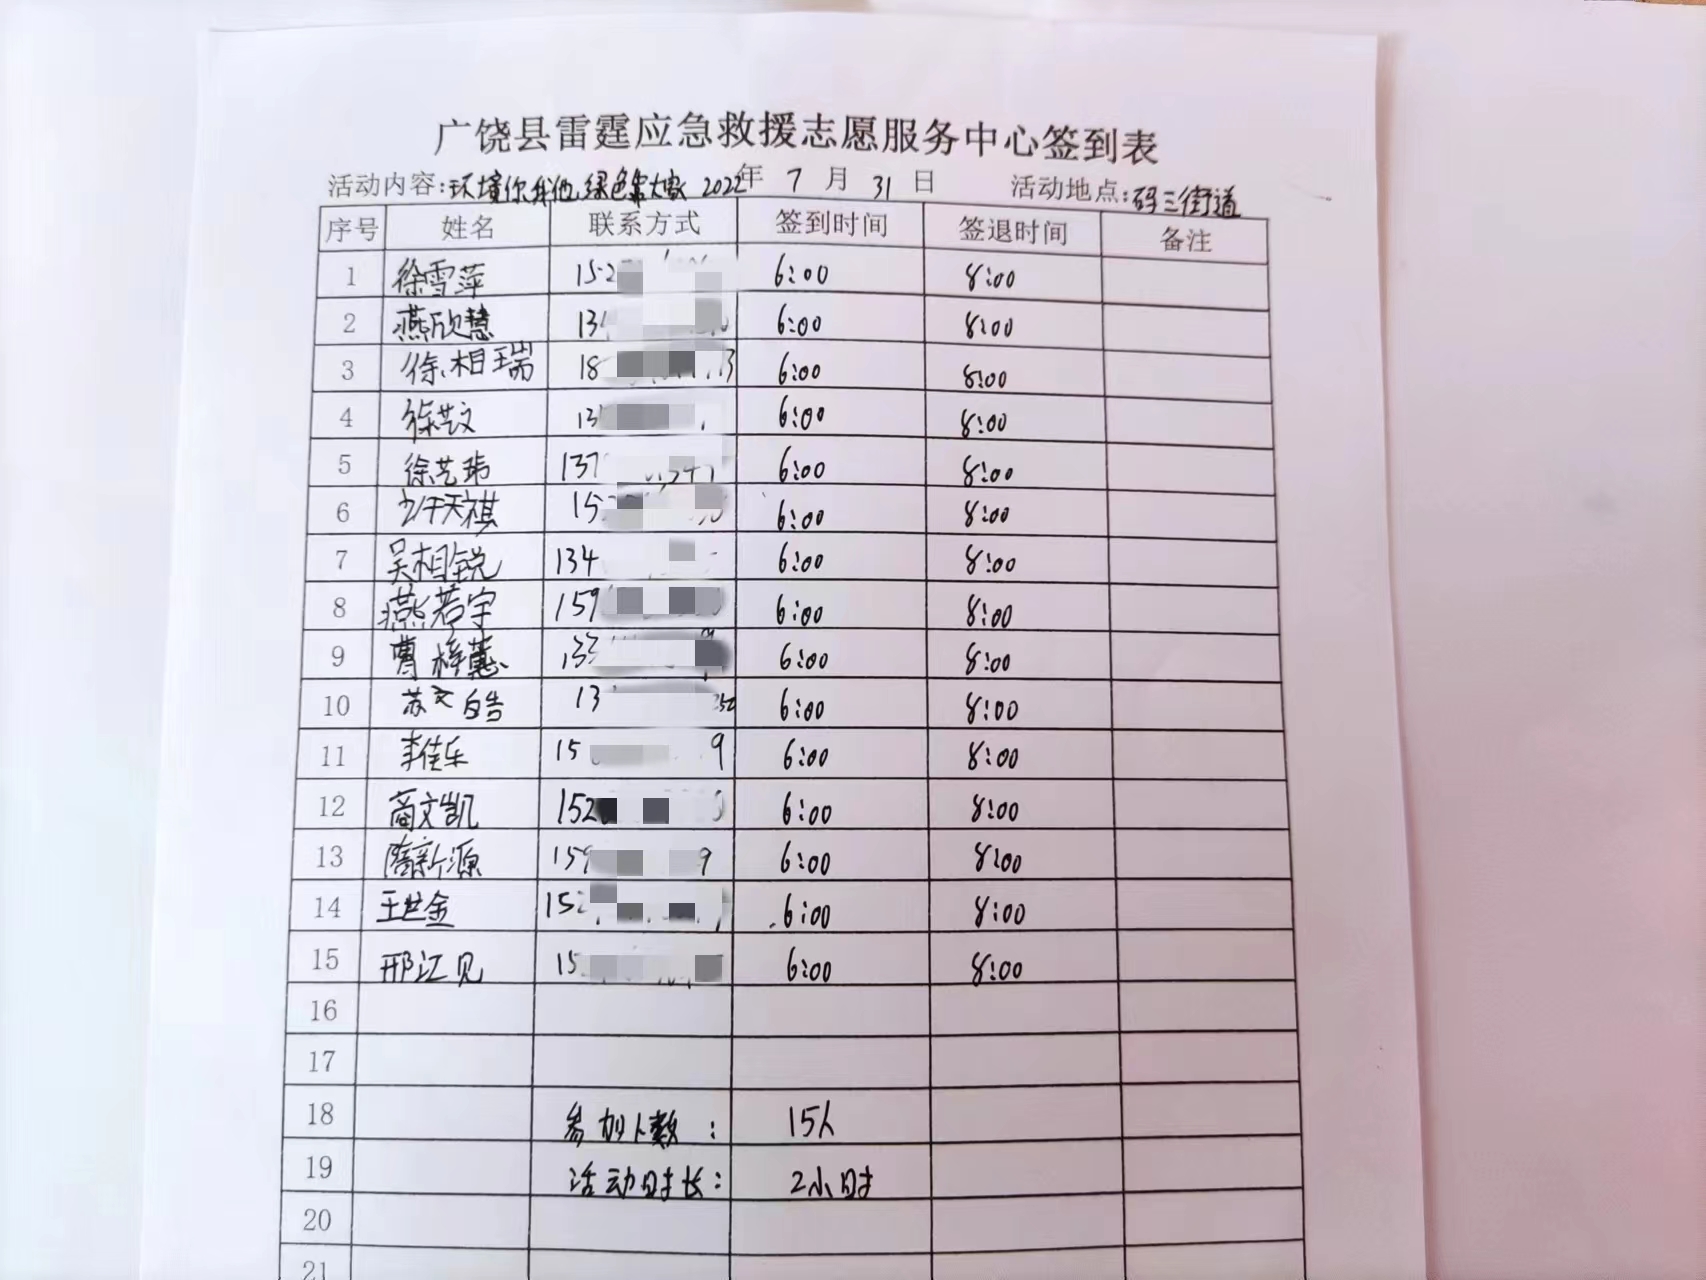 广饶县雷霆应急救援志愿服务中心签到表
活动内容:环境你我他,绿色靠大家 2022年 7 月 31 日 活动地点:码三街道
序号 姓名 联系方式 签到时间 签退时间 备注
1 徐雪萍 152 6:00 8:00
2 燕欣慧 13 6:00 8:00
3 徐相瑞 18 13 6:00 8:00
4 徐艺文 13 6:00 8:00
5 徐艺玮 137 6:00 8:00
6 天祺 15 6:00 8:00
7 吴相锐 134 6:00 8:00
8 燕若宇 159 6:00 8:00
9 曹梓蕙 133 6:00 8:00
10 苏文皓 13 6:00 8:00
11 李佳乐 15 9 6:00 8:00
12 商文凯 152 6:00 8:00
13 隋新源 159 9 6:00 8:00
14 王世金 152 6:00 8:00
15 邢江见 15 6:00 8:00
16
17
18 参加人数: 15人
19 活动时长: 2小时
20
21